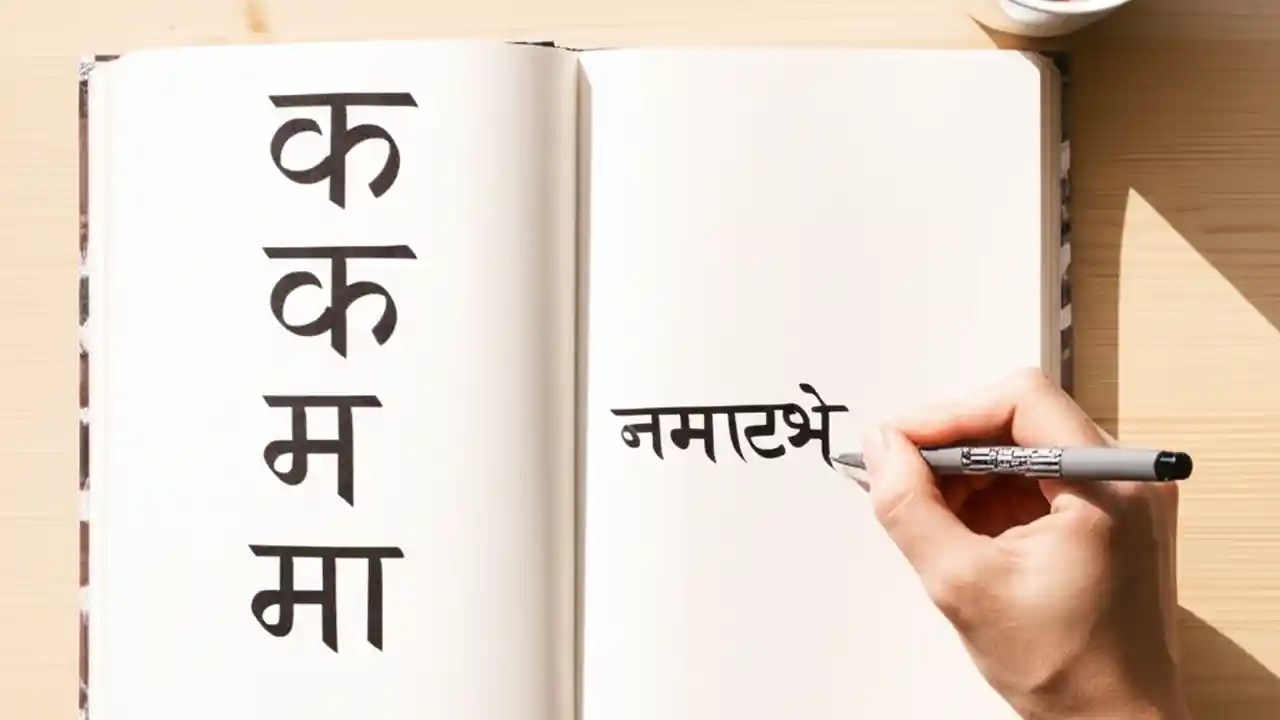 क
क
म
मा
नमाटभे